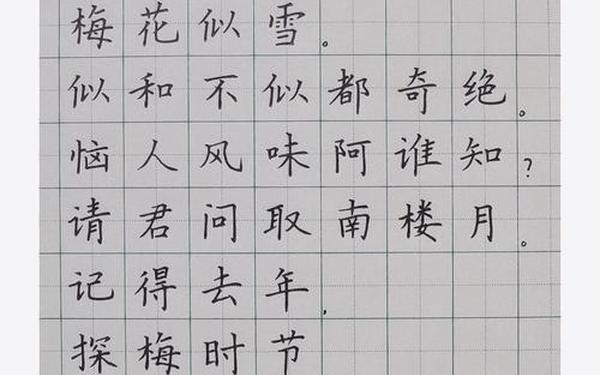 梅花似雪。
似和不似都奇绝。
恼人风味阿谁知?
请君问取南楼月。
记得去年,
探梅时节